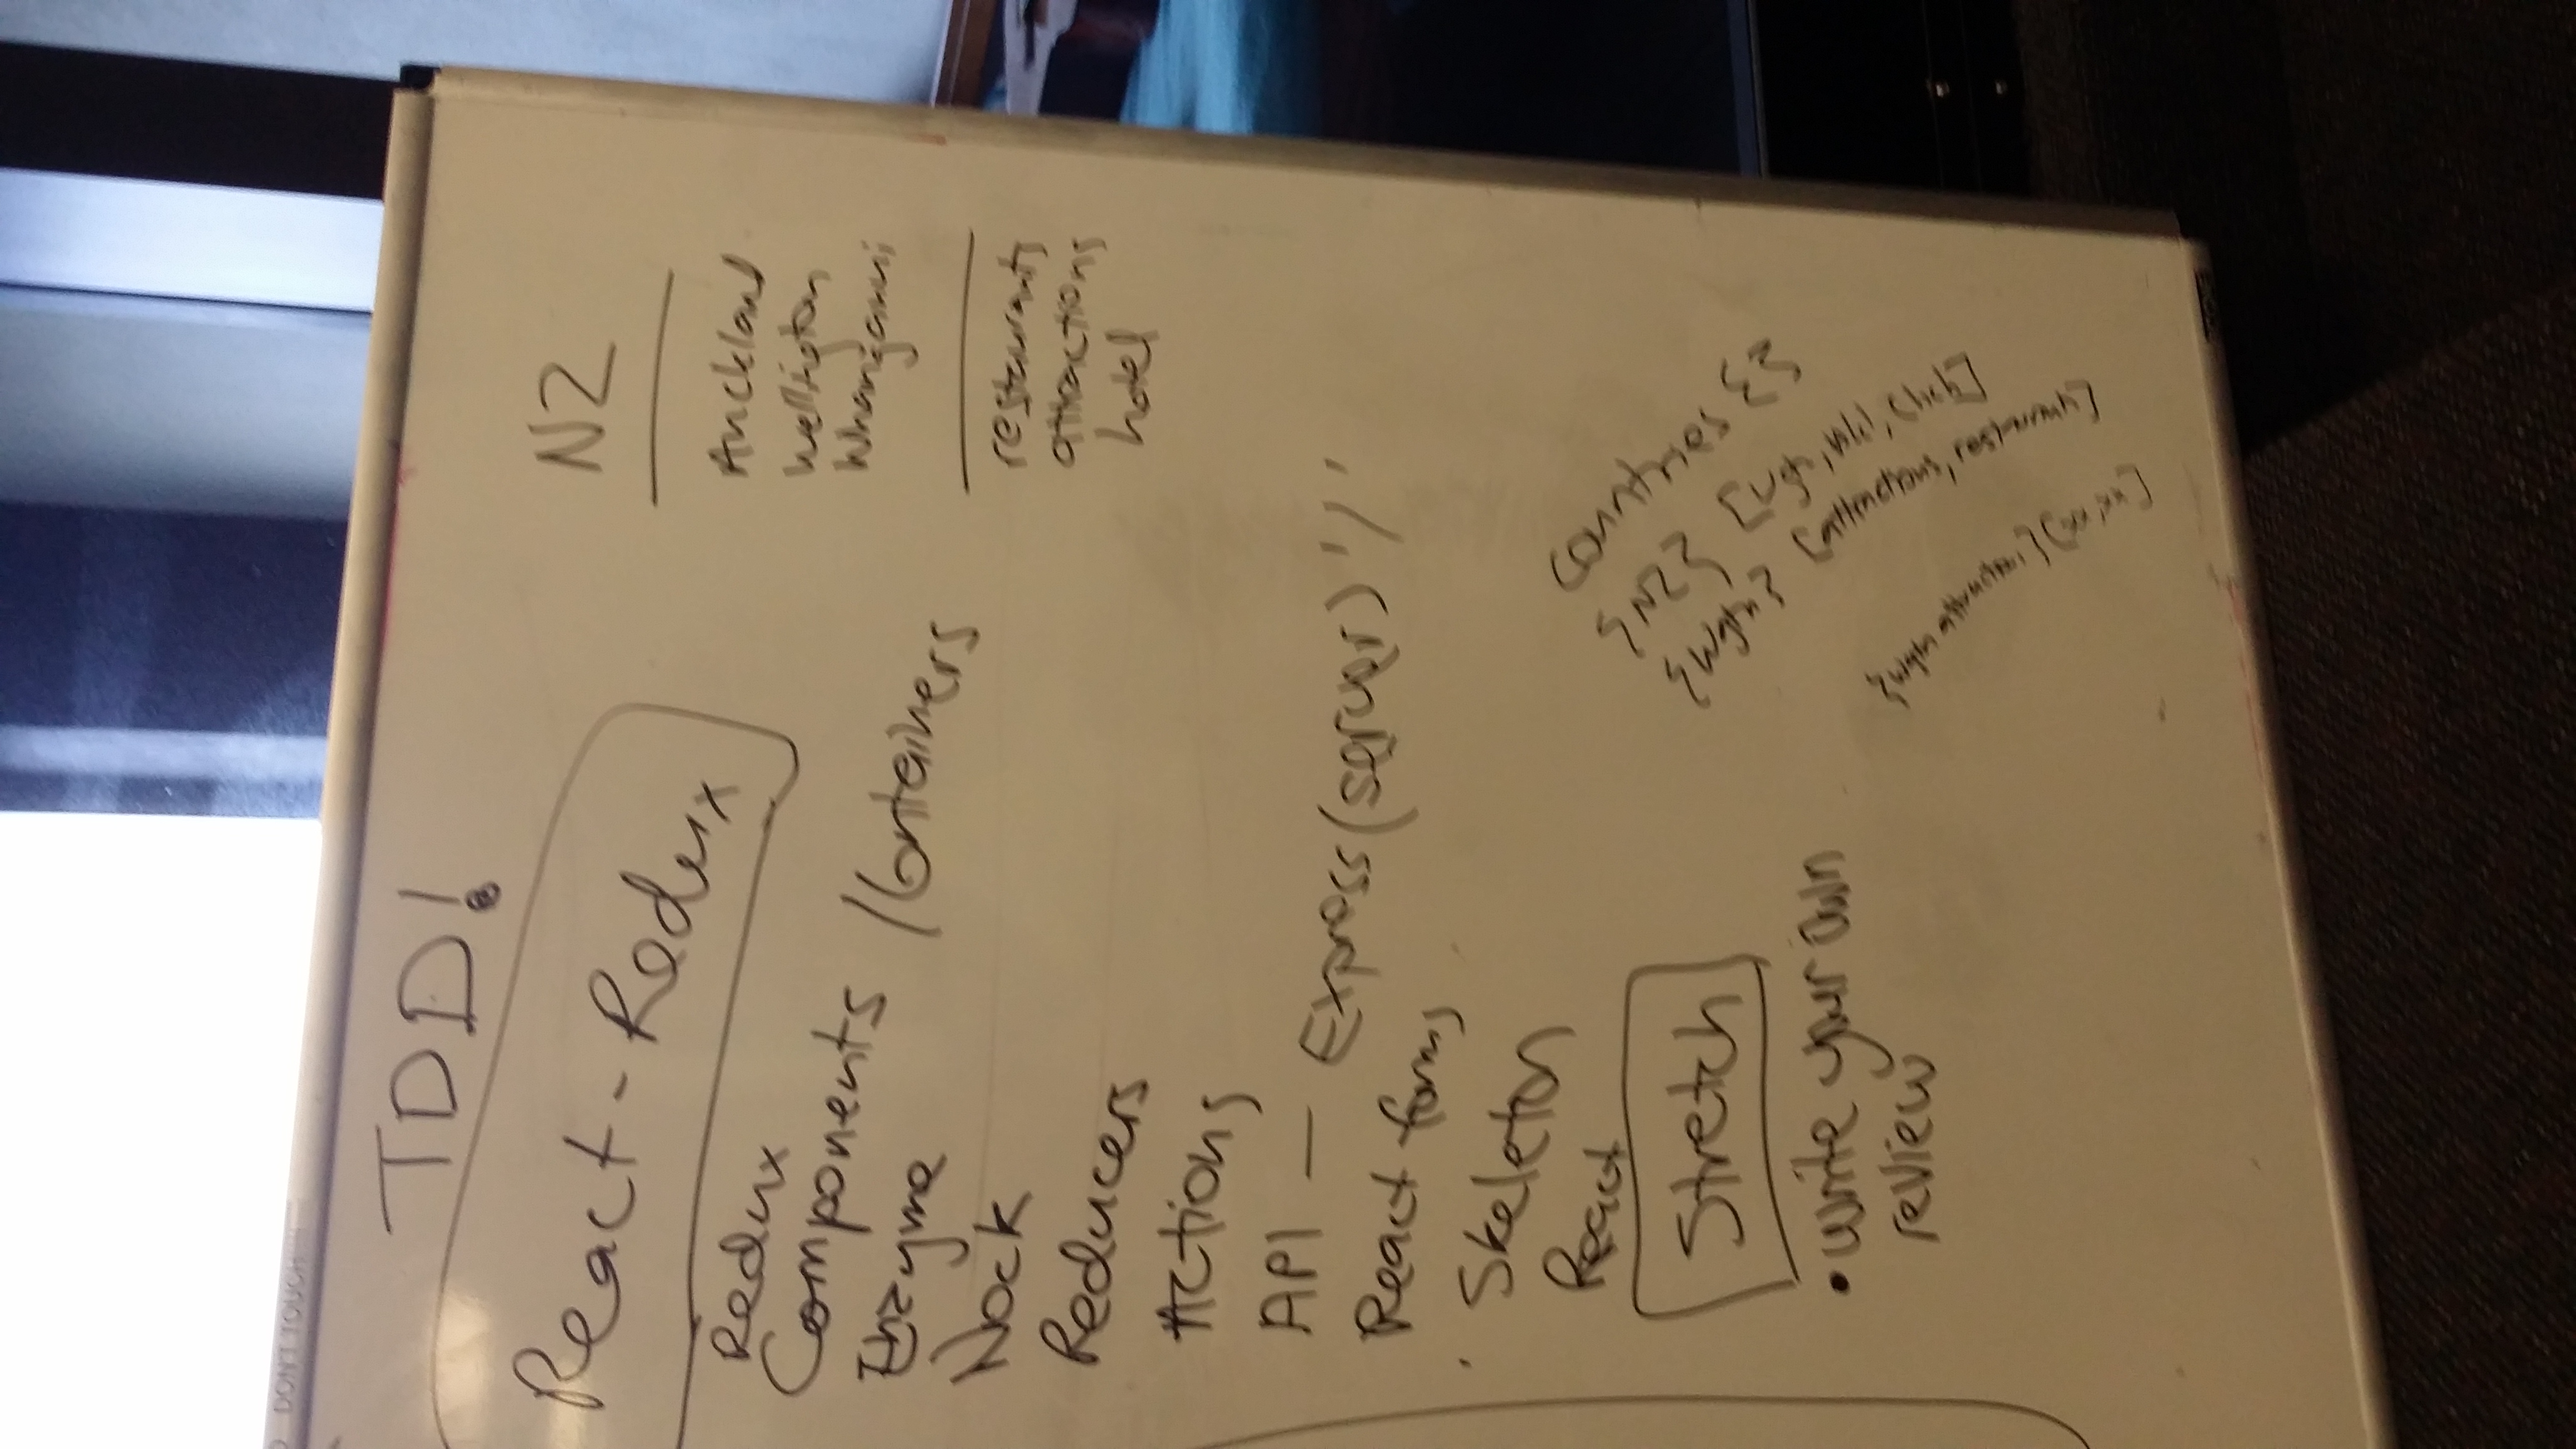 DON'T TOUCH
TDD!
React-Redux
Redux
Components / Containers
Enzyme
Nock
Reducers
Actions
API — Express (server) '/'
React forms
Skeleton
React
Stretch
• write your own
review
NZ
Auckland
Welligton
Whanganui
restaurants
attractions
hotel
Countries {}
{NZ}
{wgtn} [attractions, restaurants]
{wgtn attraction}